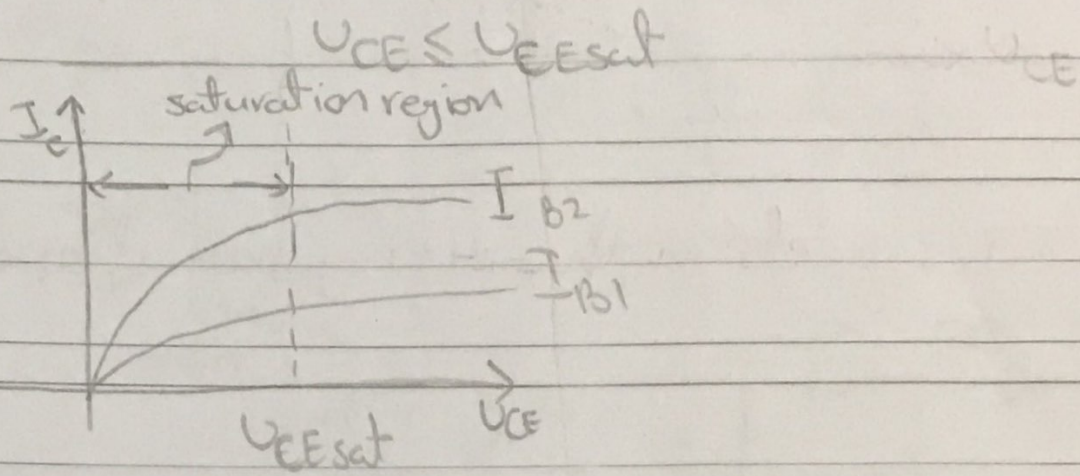 U_CE ≤ U_CEsat
U_CE
saturation region
I_c
I_B2
I_B1
U_CEsat
U_CE